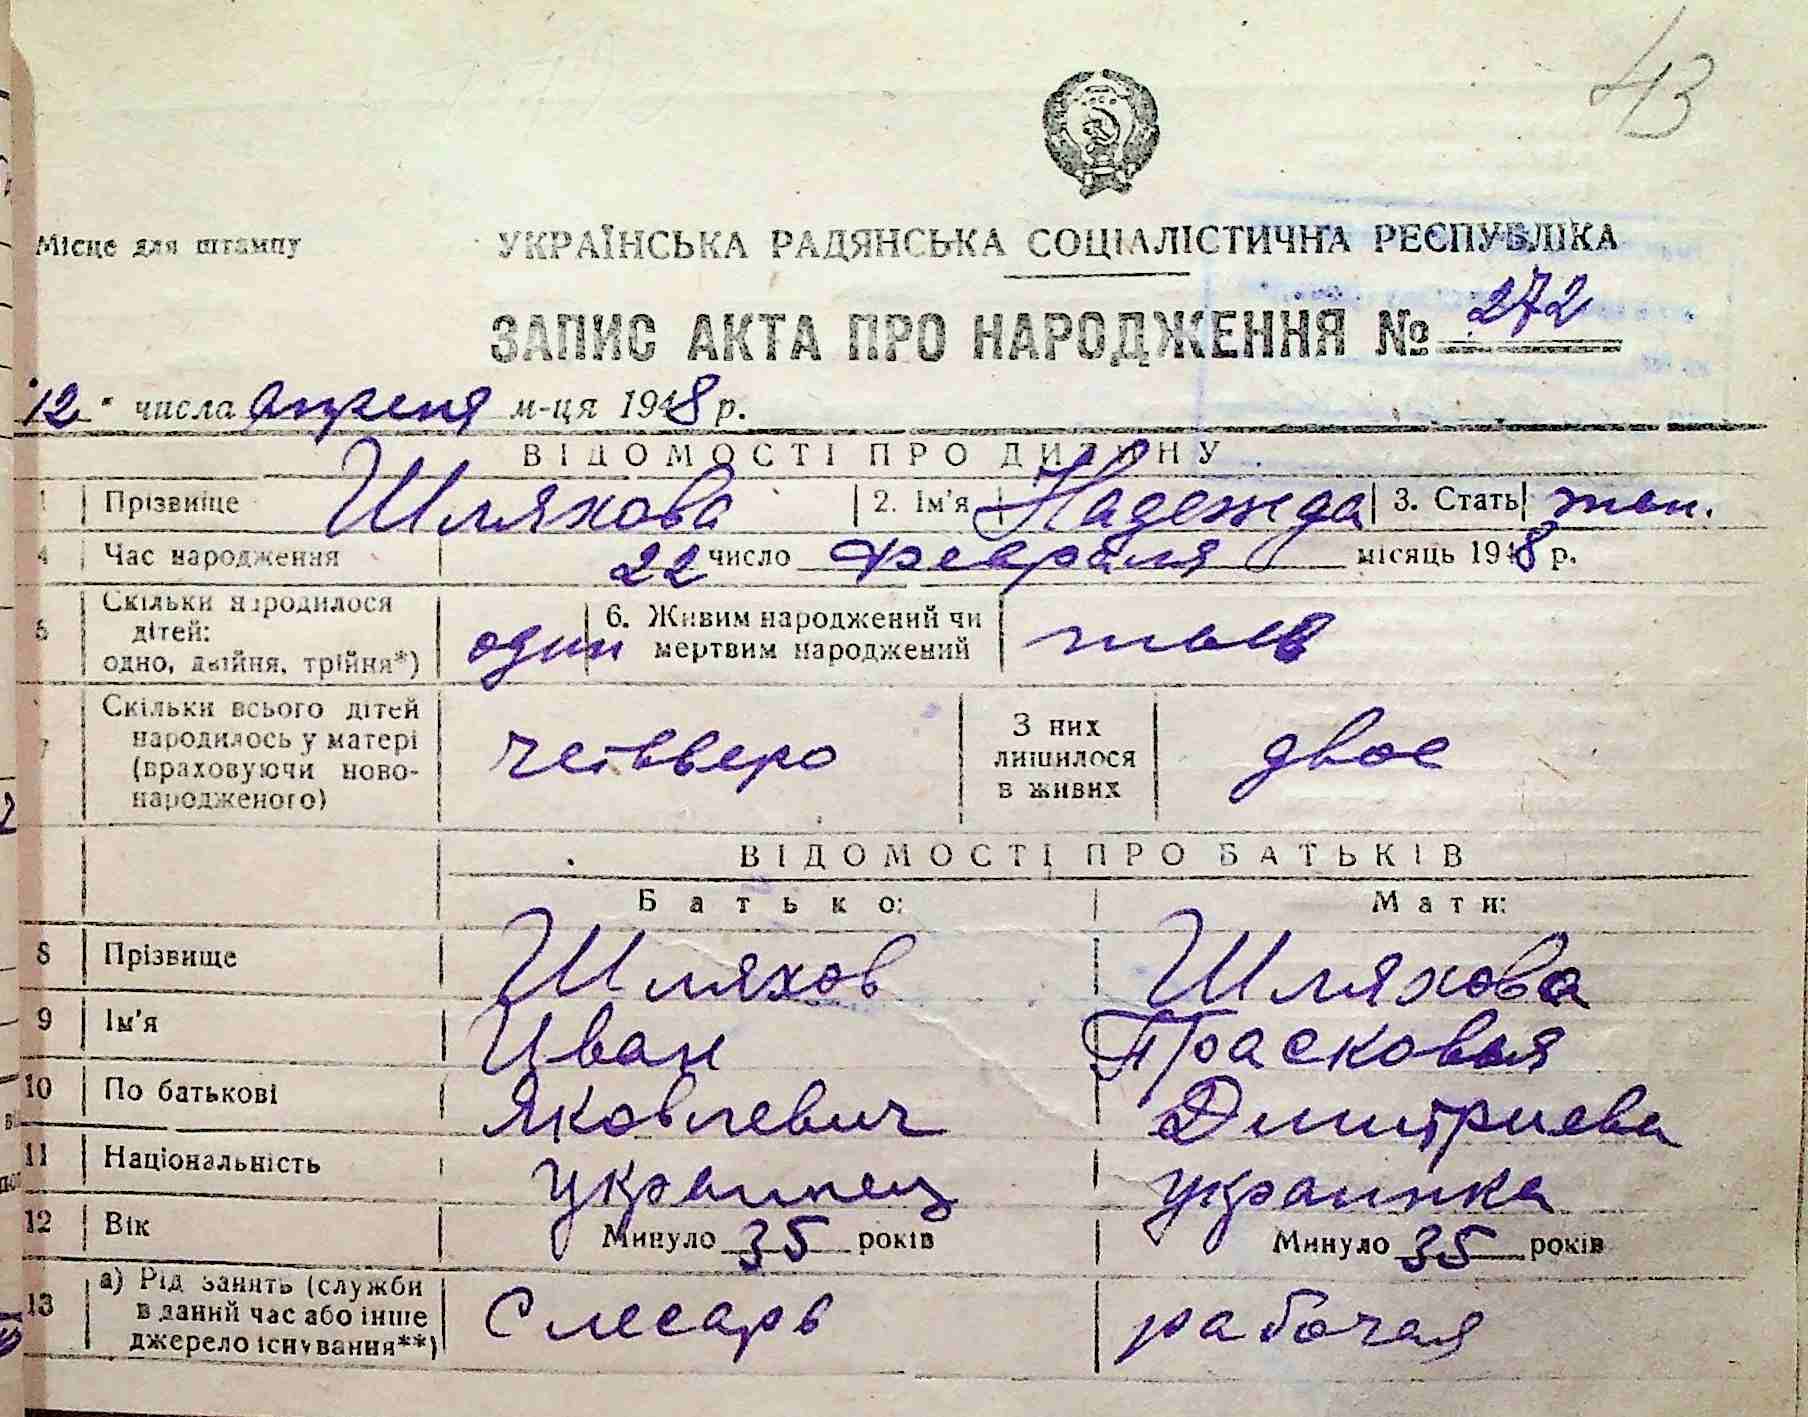 43
Місце для штампу
УКРАЇНСЬКА РАДЯНСЬКА СОЦІАЛІСТИЧНА РЕСПУБЛІКА
ЗАПИС АКТА ПРО НАРОДЖЕННЯ № 272
"12" числа апреля м-ця 1948 р.
ВІДОМОСТІ ПРО ДИТИНУ
1 Прізвище Шляхова 2. Ім'я Надежда 3. Стать жен.
4 Час народження 22 число февраля місяць 1948 р.
5 Скільки народилося дітей: одно, двійня, трійня*) один 6. Живим народжений чи мертвим народжений жив
7 Скільки всього дітей народилось у матері (враховуючи новонародженого) четверо З них лишилося в живих двое
ВІДОМОСТІ ПРО БАТЬКІВ
Батько: Мати:
8 Прізвище Шляхов Шляхова
9 Ім'я Иван Прасковья
10 По батькові Яковлевич Дмитриева
11 Національність украинец украинка
12 Вік Минуло 35 років Минуло 35 років
13 а) Рід занять (служби в даний час або інше джерело існування**) Слесарь рабочая